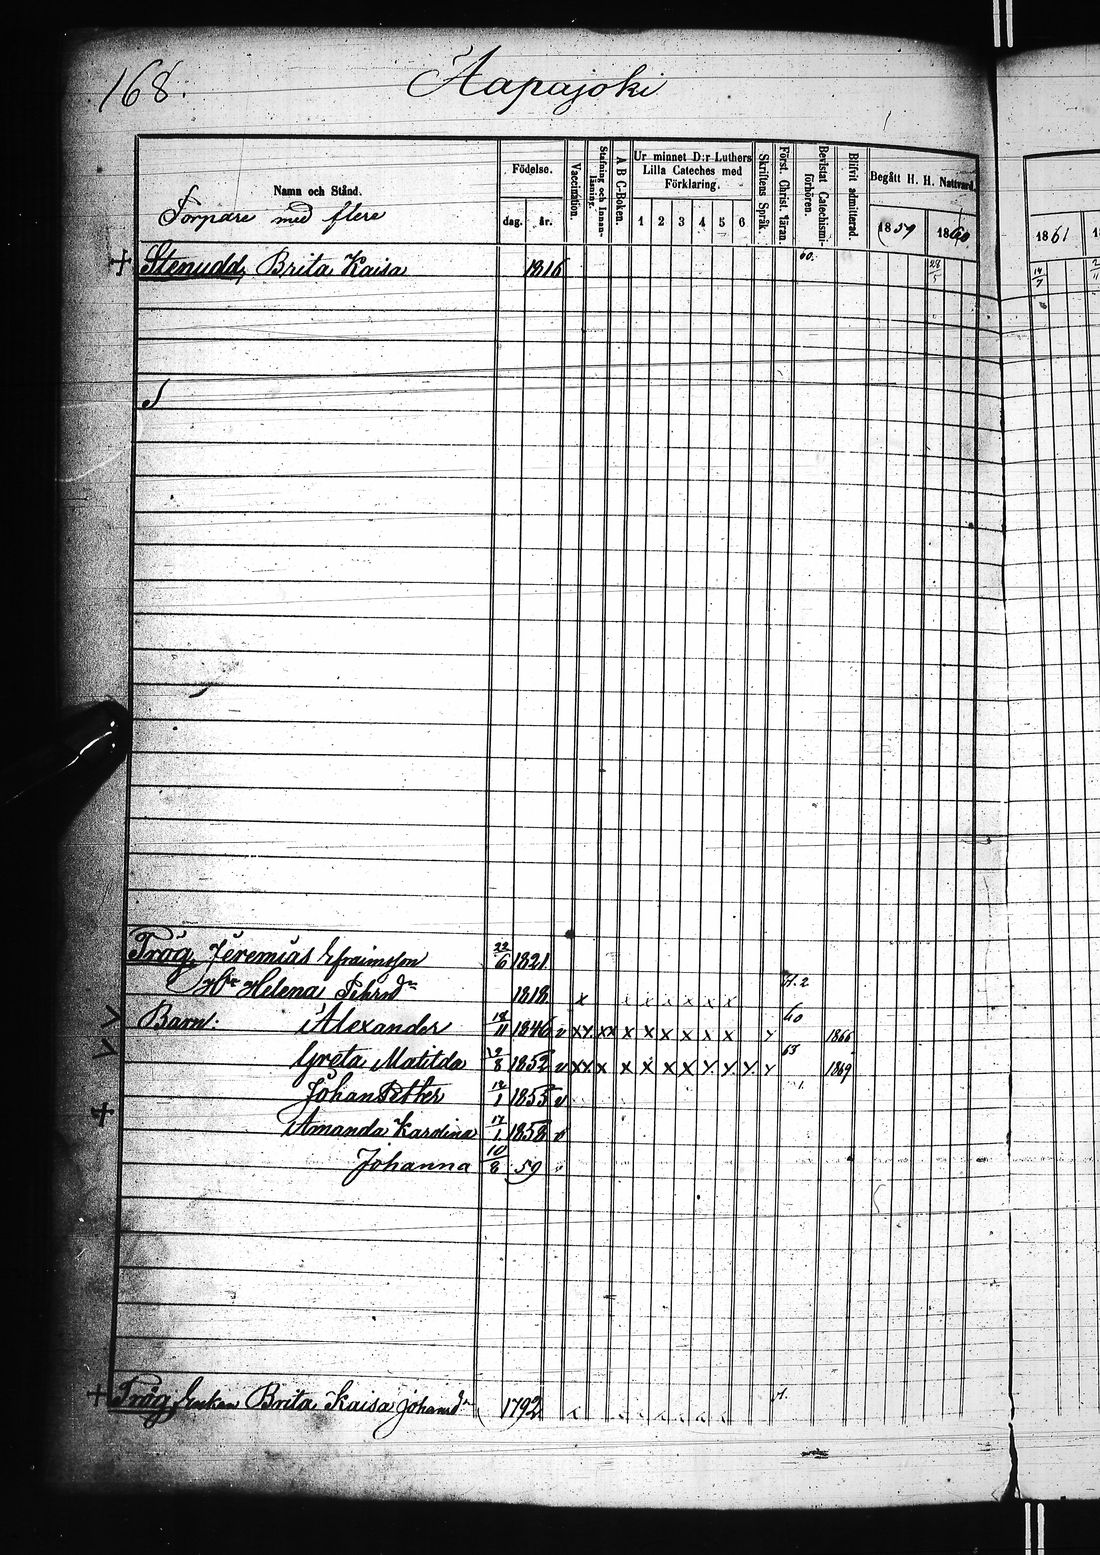 168.
Haapajoki
Namn och Stånd.
Torpare med flere
Födelse.
dag. år.
Vaccination.
Stafning och Innanläsning.
A B C-Boken.
Ur minnet D:r Luthers Lilla Cateches med Förklaring.
1 2 3 4 5 6
Skriftens Språk.
Först. Christ. läran.
Bevistat Catechismiförhören.
Blifvit admitterad.
Begått H. H. Nattvard.
1859 1860
1861
+ Stenudd, Brita Kaisa 1816 60. 28/5 14/7
Trög, Jeremias Efraimsson 22/6 1821
Hu Helena Pehrsdr 1818 x x x x x x x
Barn: Alexander 18/11 1846 v x x x x x x x x x x 60 1866
Greta Matilda 1852 v x x x x x x x 1869
Johan Petter 12/1 1855 v
+ Amanda Karolina 17/1 1858 v
Johanna 10/8 59 v
+ Trög, Enkan Brita Kaisa Johansdr 1792